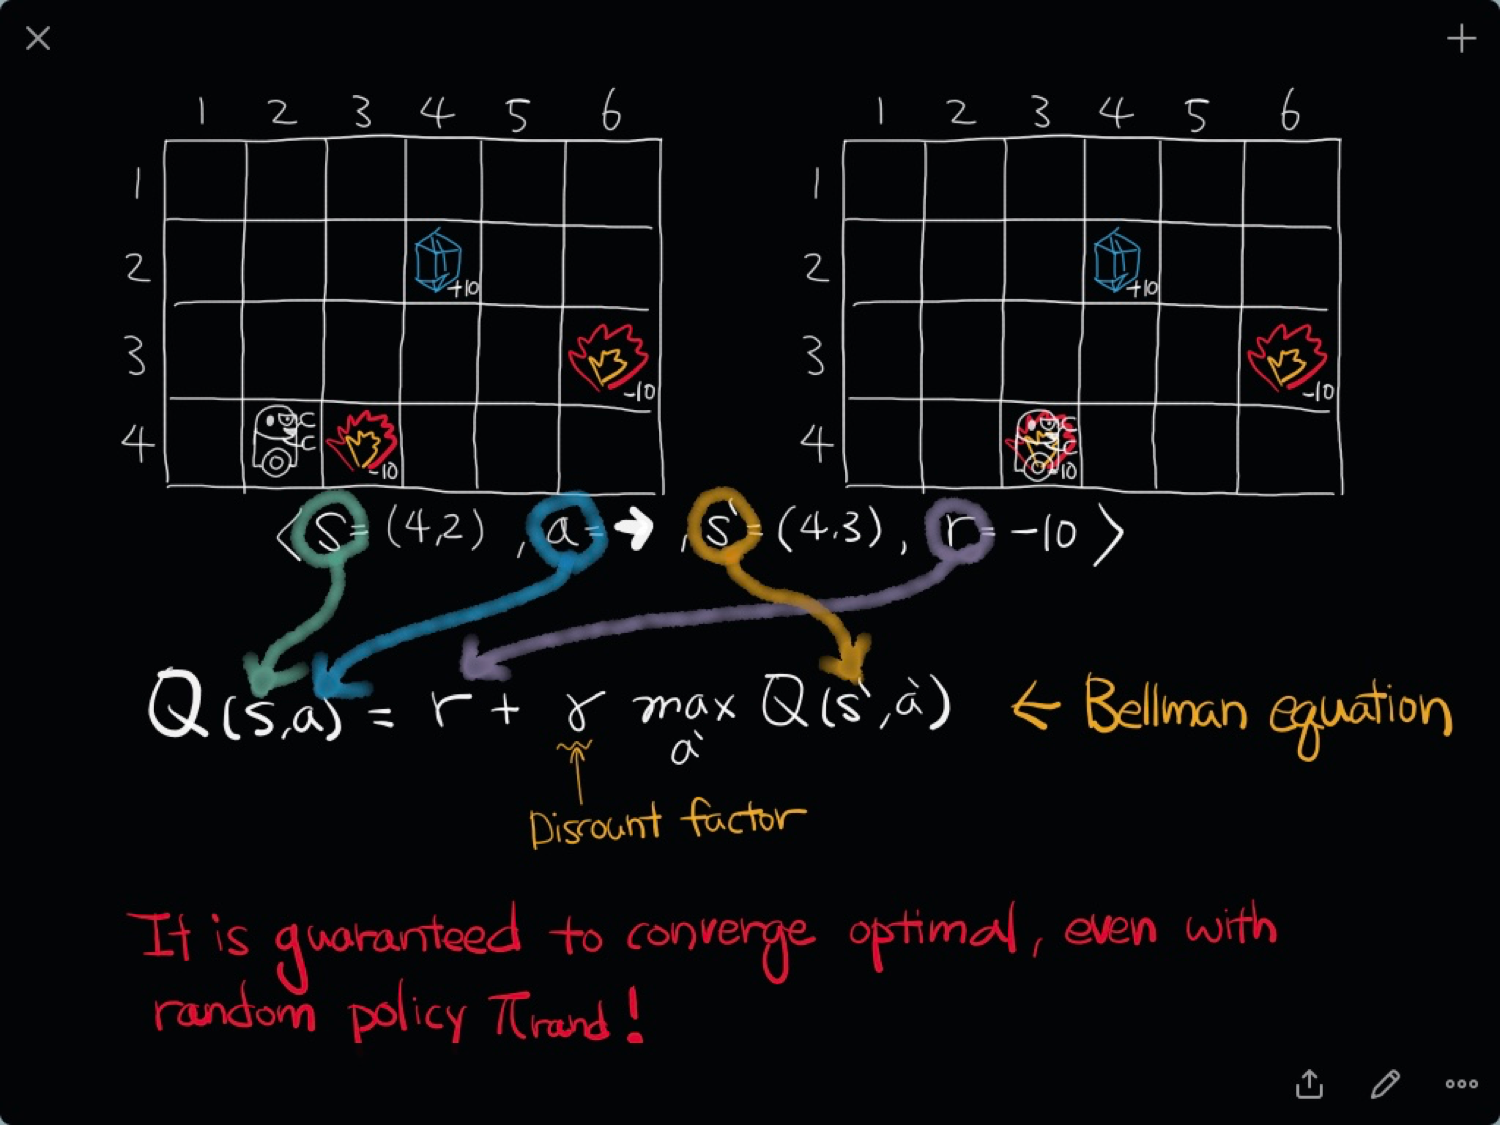 1 2 3 4 5 6 1 2 3 4 5 6
1 1
2 +10 2 +10
3 -10 3 -10
4 -10 4 -10
⟨ s = (4,2) , a = → , s` = (4,3) , r = -10 ⟩
Q(s,a) = r + γ max Q(s`,a`) ← Bellman equation
a`
Discount factor
It is guaranteed to converge optimal, even with
random policy πrand!